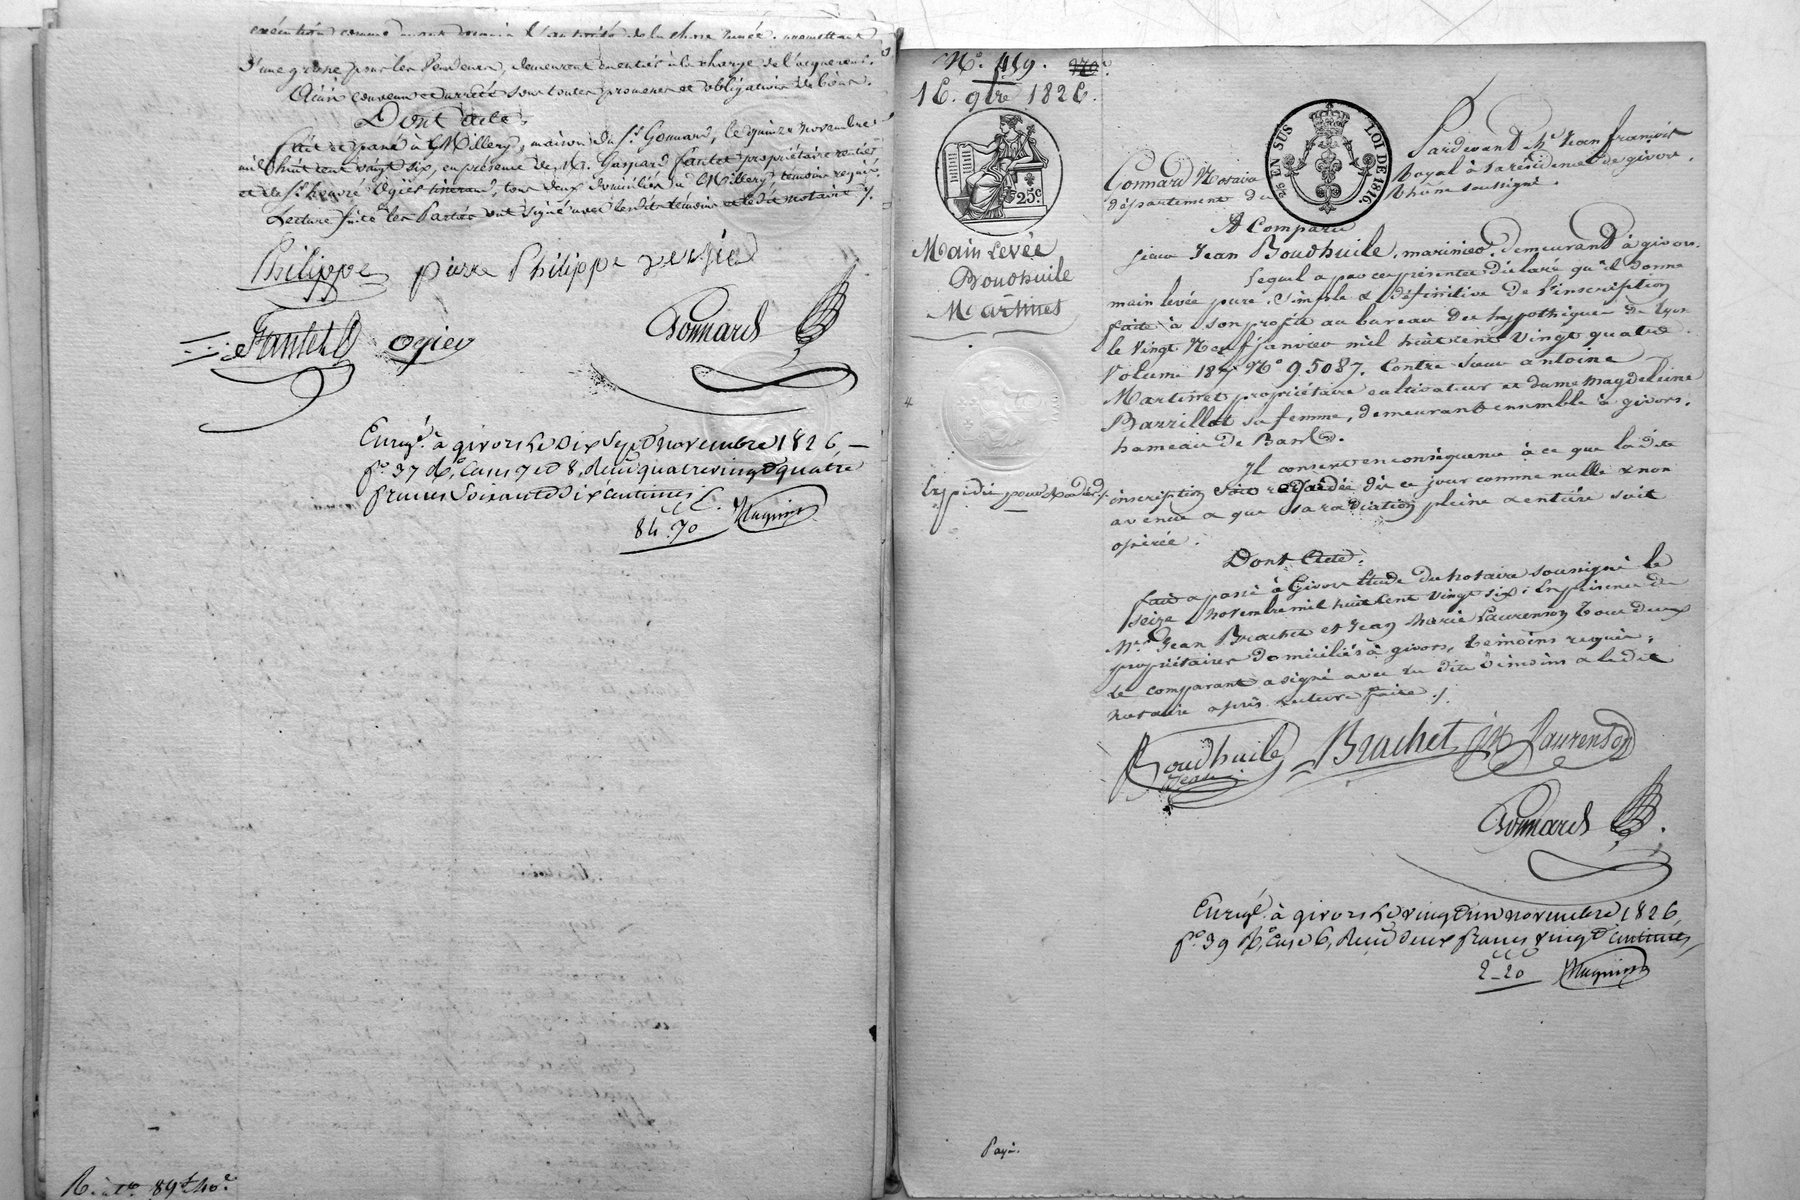 exécution comme ayant acquis l'autorité de la chose jugée. promettant
D'une grosse pour les Vendeurs, demeurent en entier à la charge de l'acquéreur.
Ainsi convenu et arrêté sous toutes promesses et obligations de Droit.
Dont acte
fait et passé à Millery, maison du Sr. Gonnard, le quinze novembre
mil huit cent vingt six, en présence de Mr. Gaspard Fantet propriétaire rentier
et de Sr. Ogier, tous deux domiciliés à Millery témoins requis,
Lecture faite les Parties ont signé avec lesdits témoins et ledit notaire ./.
Philippe pierre Philippe
Fantet ogier Gonnard
Enregé. à givors Le Dix Sept novembre 1826,
fo. 37 Ro. Cases 7 et 8, Reçu quatre vingt quatre
francs Soixante dix Centimes
84.70
89f 40c
No. 459.
16. 9bre 1826.
25c.
25 EN SUS
LOI DE 1816.
Main Levée
Boudhuile
Martinet
Expédié
Pardevant Me. Jean françois
Gonnard Notaire Royal à la résidence de givors,
département du Rhône soussigné.
A Comparu
sieur Jean Boudhuile, marinier, demeurant à givors.
Lequel a par ces présentes déclaré qu'il donne
main levée pure, simple & définitive de l'inscription
faite à son profit au bureau des hypothèques de Lyon
le vingt Neuf janvier mil huit cent vingt quatre
Volume 187 No. 95087. Contre sieur antoine
Martinet propriétaire cultivateur et dame magdeleine
Barrillot sa femme, demeurant ensemble à givors,
hameau de Bans.
Il consent en conséquence à ce que la dite
inscription soit regardée dès ce jour comme nulle & non
avenue & que sa radiation pleine & entière soit
opérée.
Dont Acte.
fait & passé à Givors Etude du notaire soussigné le
seize novembre mil huit cent vingt six: En présence de
Mrs. Jean Brachet et Jean Marie Laurenson tous deux
propriétaires domiciliés à givors, témoins requis;
Le comparant a signé avec les dits témoins & ledit
notaire après lecture faite ./.
Boudhuile Jean Brachet jm Laurenson
Gonnard
Enregé. à givors Le vingt un novembre 1826,
fo. 39 Ro. Case 6, Reçu deux francs vingt Centimes,
2-20
Payé.